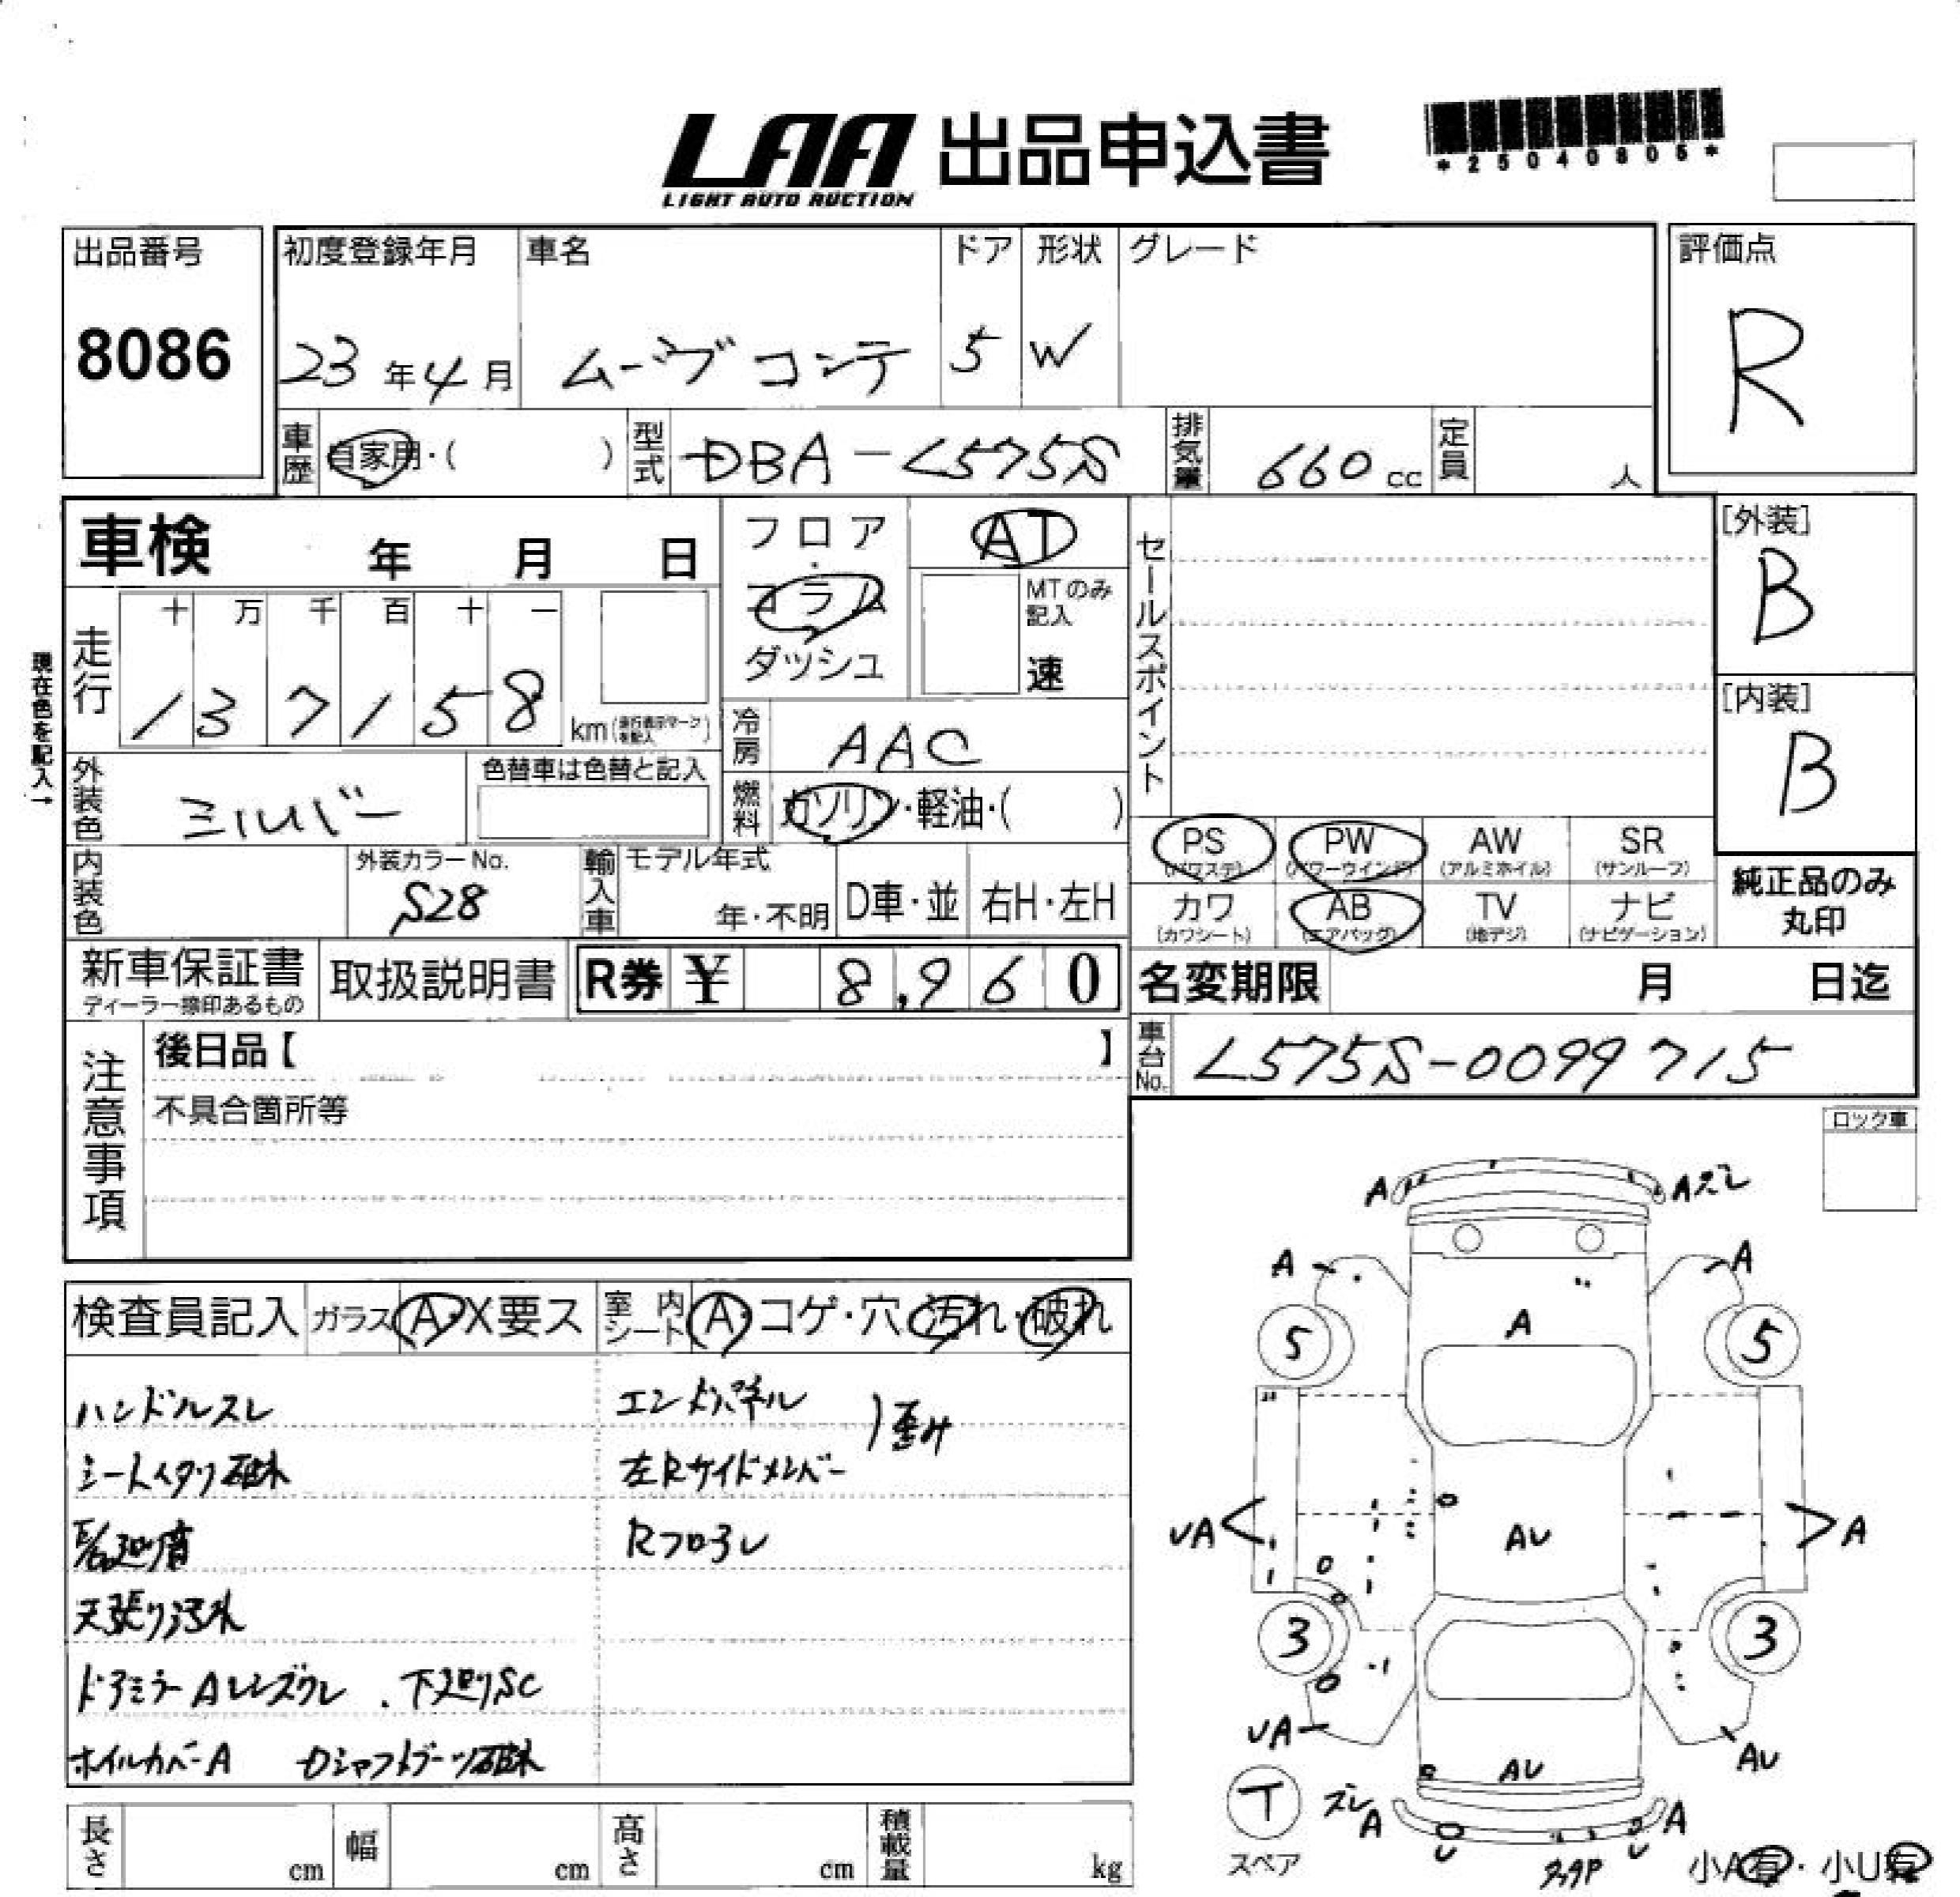 LAA 出品申込書
LIGHT AUTO AUCTION
*25040805*
出品番号
8086
初度登録年月
23年4月
車名
ムーヴコンテ
ドア
5
形状
W
グレード
評価点
R
車歴 自家用・( )
型式 DBA-L575S
排気量 660cc
定員 人
車検 年 月 日
フロア・コラム・ダッシュ
AT
MTのみ記入
速
セールスポイント
[外装]
B
[内装]
B
現在色を記入→
走行 十 万 千 百 十 一
137158 km
冷房 AAC
燃料 ガソリン・軽油・( )
外装色 シルバー
色替車は色替と記入
内装色
外装カラーNo.
S28
輸入車
モデル年式
年・不明
D車・並
右H・左H
PS (パワステ)
PW (パワーウインド)
AW (アルミホイル)
SR (サンルーフ)
カワ (カワシート)
AB (エアバッグ)
TV (地デジ)
ナビ (ナビゲーション)
純正品のみ丸印
新車保証書
ディーラー捺印あるもの
取扱説明書
R券 ¥ 8,960
名変期限 月 日迄
車台No. L575S-0099715
注意事項
後日品【 】
不具合箇所等
ロック車
検査員記入
ガラス A・X要ス
室内シート A・コゲ・穴・汚れ・破れ
ハンドルスレ
シートヘタリ破れ
天張り汚れ
ドアミラーAレンズワレ . 下廻りSC
ホイルカバーA Dシャフトブーツ破れ
エンドパネル
左Rサイドメンバー
)歪み
Rフロアレ
A Aズレ
A A
A
5 5
UA AU A
3 3
UA AU AU
T
スペア
ズレ
A A
U U
小A有・小U有
長さ cm
幅 cm
高さ cm
積載量 kg